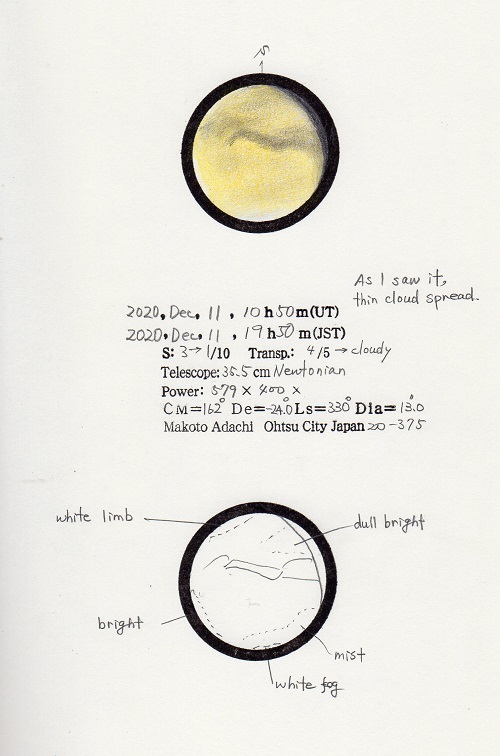 S
As I saw it,
thin cloud spread.
2020, Dec, 11, 10h50m(UT)
2020, Dec, 11, 19h50m(JST)
S: 3→1/10 Transp.: 4/5→cloudy
Telescope: 35.5cm Newtonian
Power: 579× 400×
CM=162° De=-24.0 Ls=330° Dia=13.0"
Makoto Adachi Ohtsu City Japan 20-375
white limb
dull bright
bright
mist
white fog